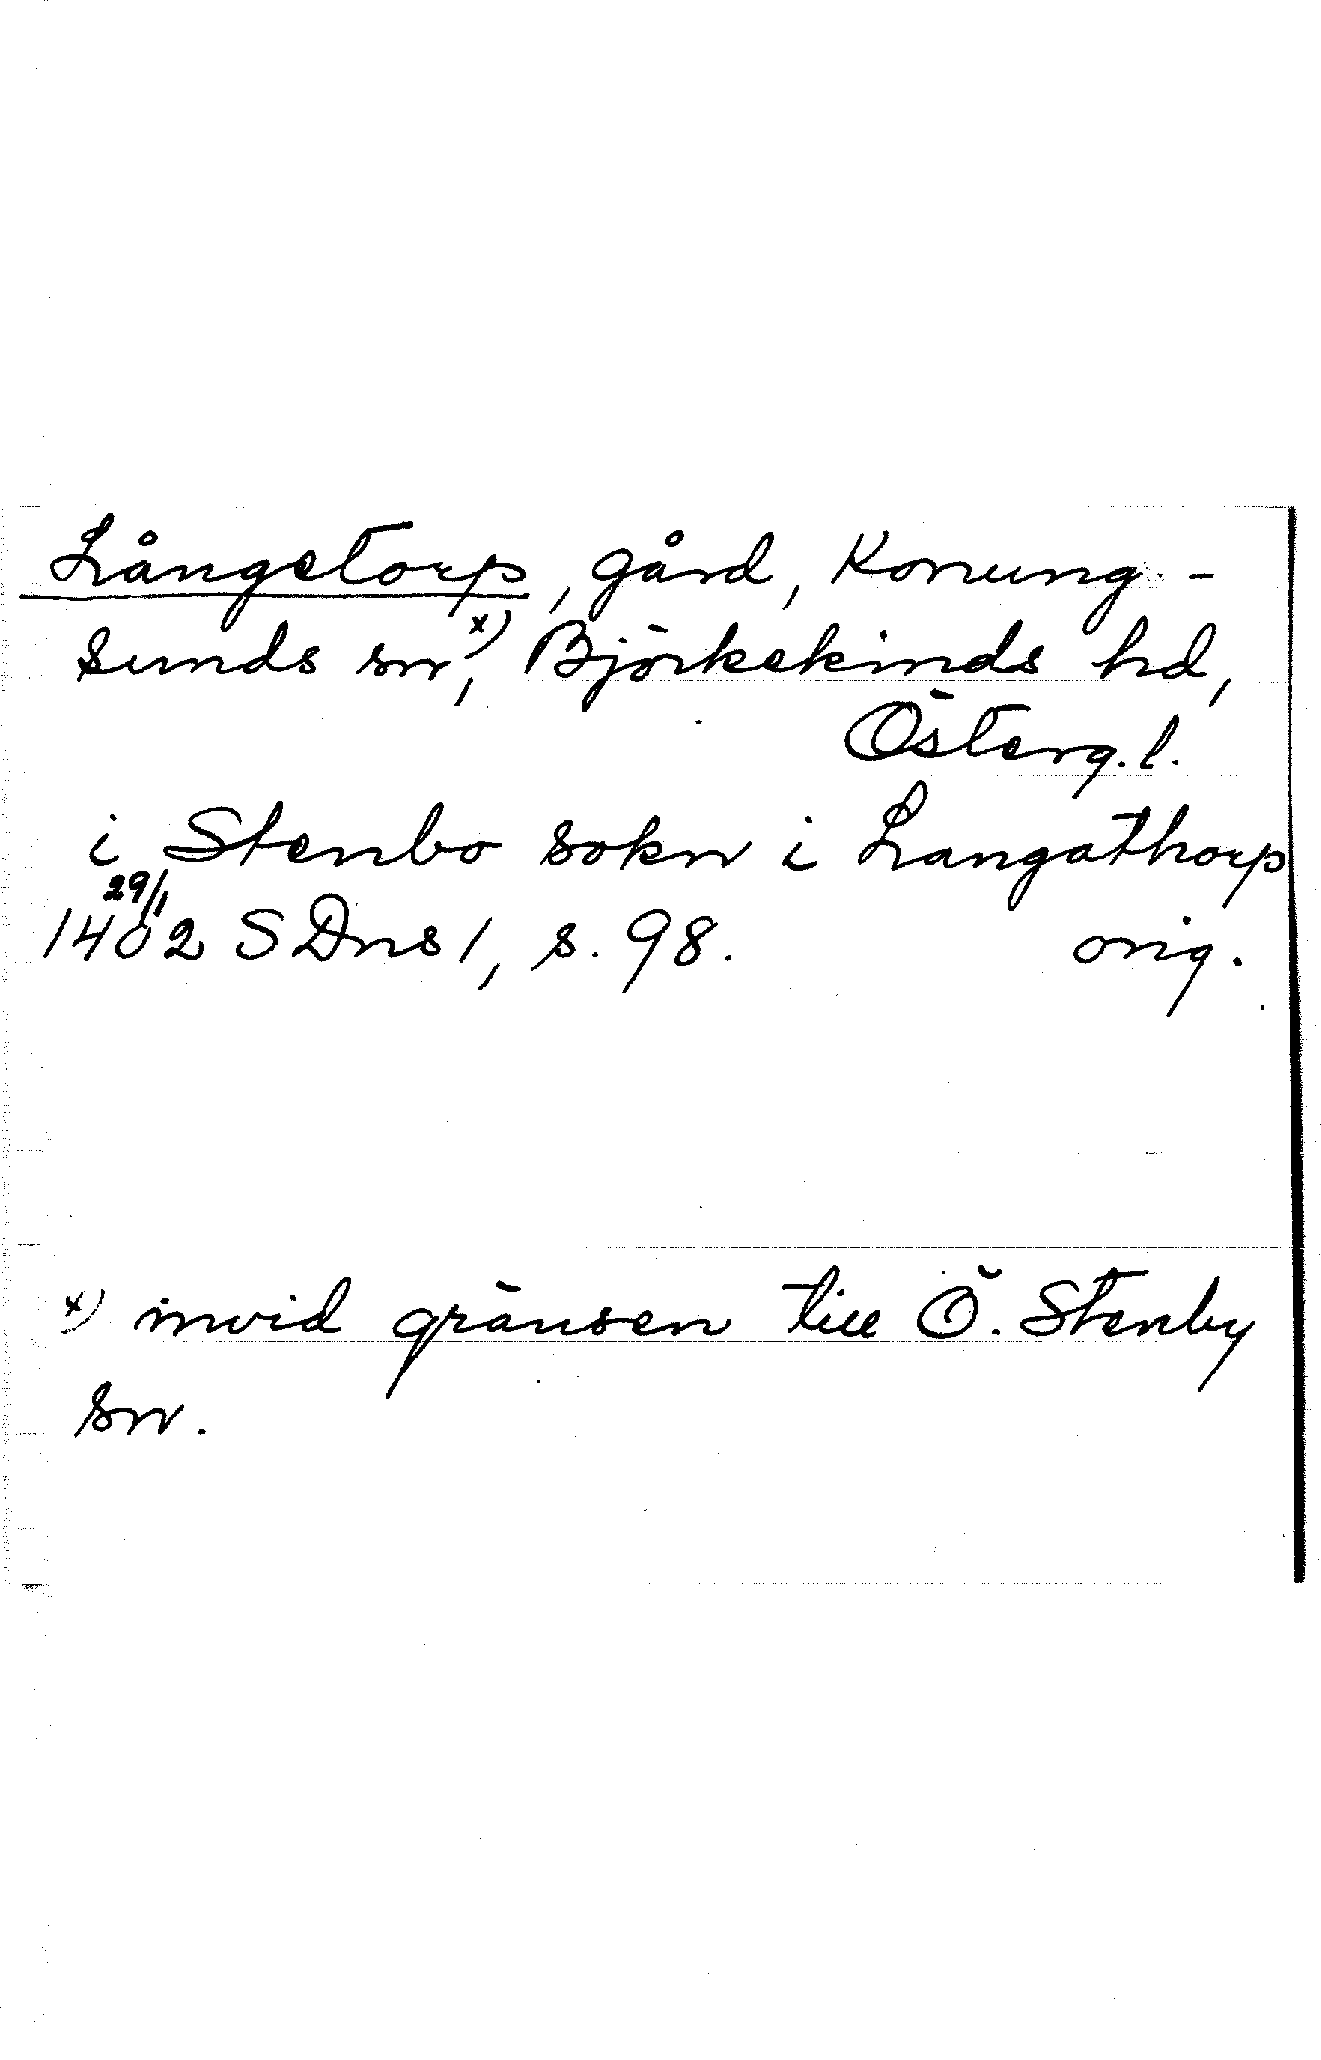 Långetorp, gård, Konung-
sunds sn x), Björkekinds hd,
Österg. l.
i Stenbo sokn i Langathorp
29/1
1402 SDns 1, s. 98. orig.
x) invid gränsen till Ö. Stenby
sn.